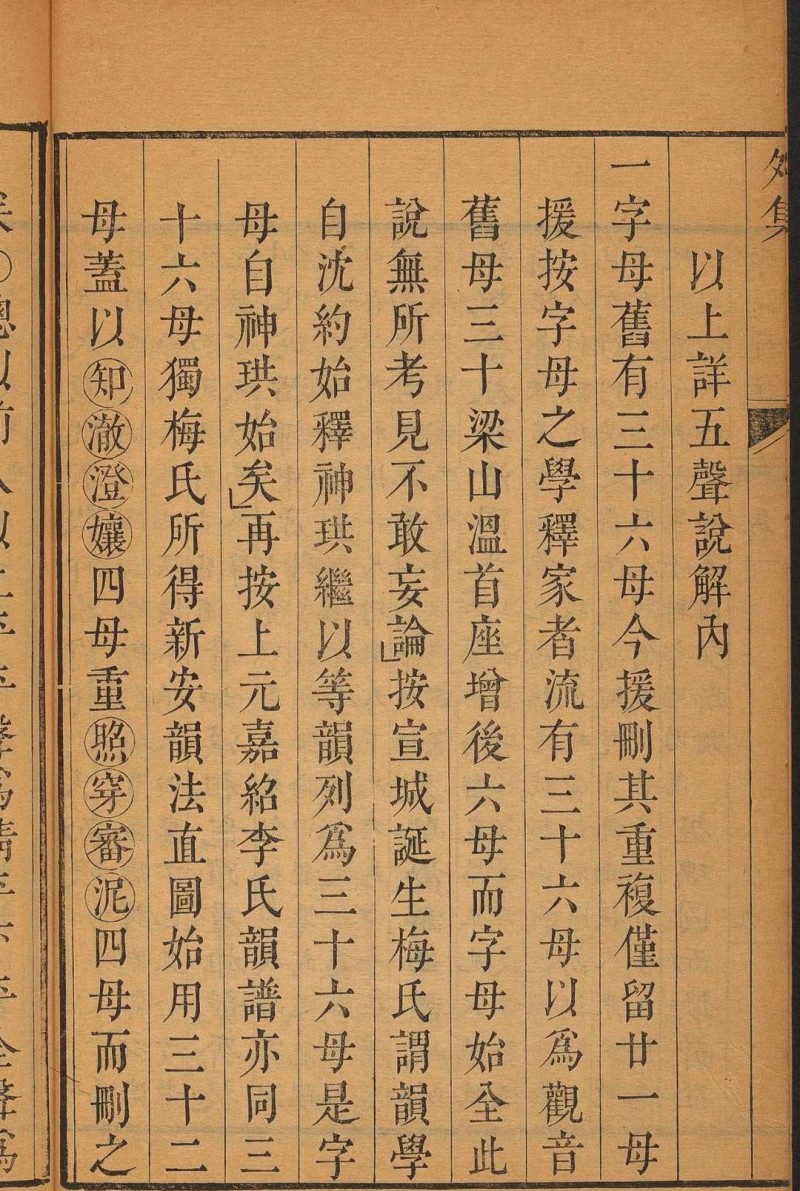 外集
以上詳五聲說解內
一字母舊有三十六母今援刪其重複僅留廿一母
援按字母之學釋家者流有三十六母以爲觀音
舊母三十梁山溫首座增後六母而字母始全此
說無所考見不敢妄論」按宣城誕生梅氏謂韻學
自沈約始釋神珙繼以等韻列爲三十六母是字
母自神珙始矣」再按上元嘉紹李氏韻譜亦同三
十六母獨梅氏所得新安韻法直圖始用三十二
母蓋以知澈澄孃四母重照穿審泥四母而刪之